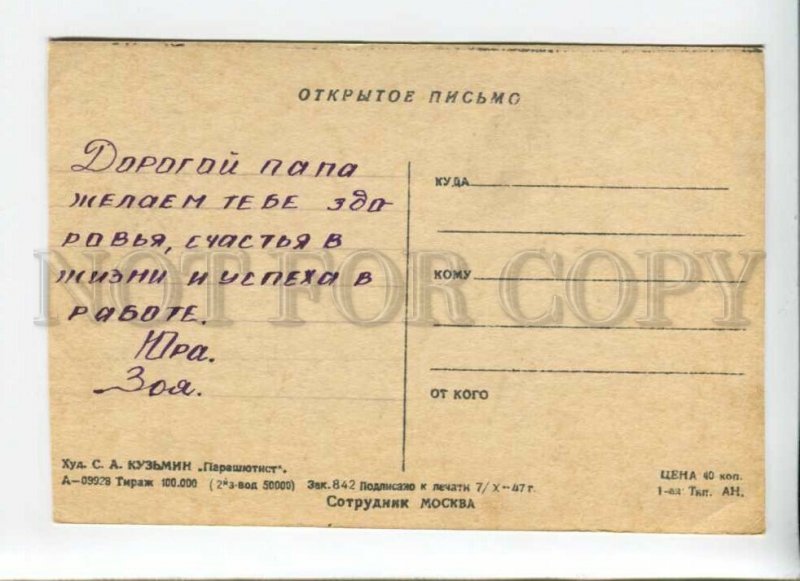 ОТКРЫТОЕ ПИСЬМО
ДОРОГОЙ ПАПА
ЖЕЛАЕМ ТЕБЕ ЗДО
РОВЬЯ, СЧАСТЬЯ В
ЖИЗНИ И УСПЕХА В
РАБОТЕ.
Юра.
Зоя.
КУДА
КОМУ
ОТ КОГО
NOT FOR COPY
Худ. С. А. КУЗЬМИН „Парашютист“.
А—09928 Тираж 100.000 (2й з-вод 50000) Зак. 842 Подписано к печати 7/X—47 г.
Сотрудник МОСКВА
ЦЕНА 40 коп.
1-ая Тип. АН.